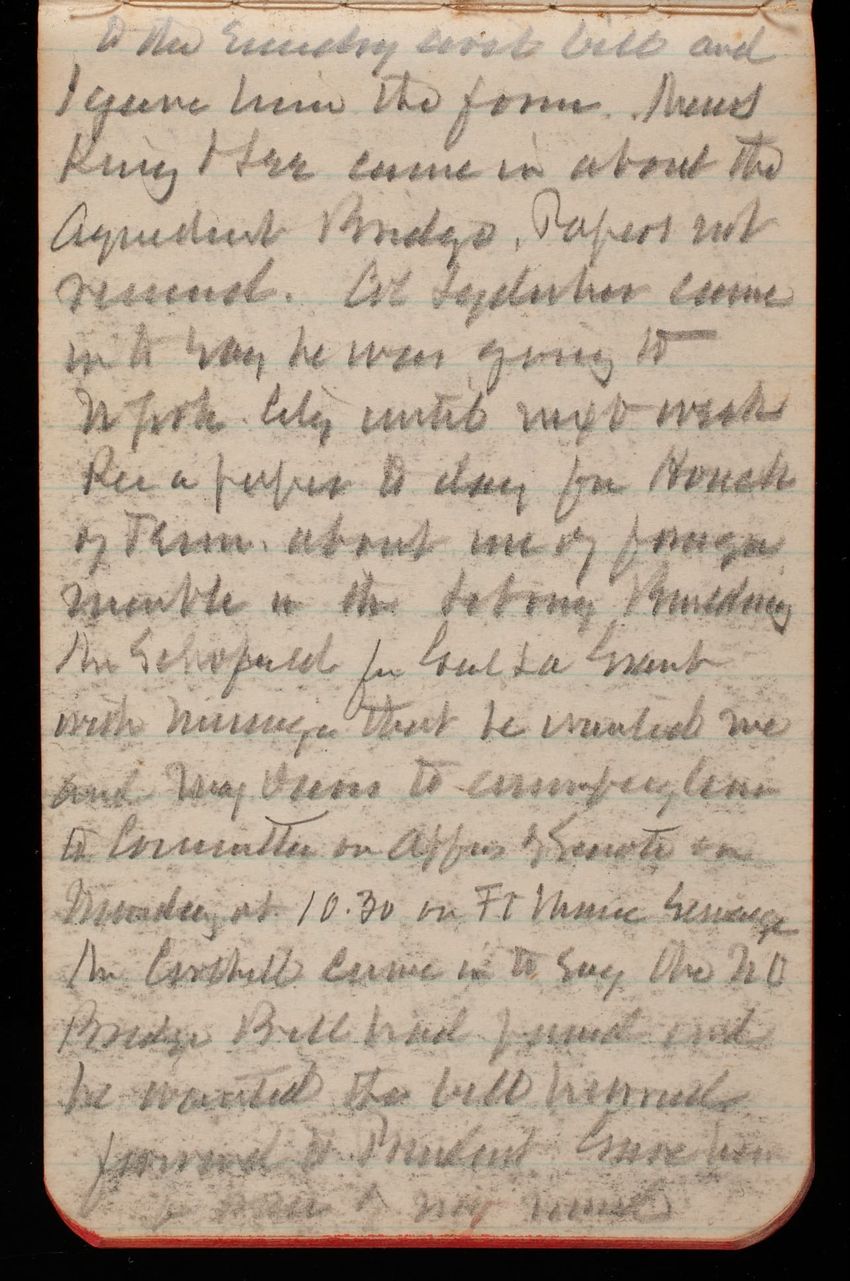 to the Sundry Civil bill and
I gave him the form. Mess
King & Lee came in about the
Aqueduct Bridge. Papers not
received. Col Lydecker came
in to say he was going to
N York City until next week
Rec a paper to day for Houck
of Tenn. about use of foreign
marble in the Library Building
Mr Schofield for Genl Grant
with message that he wanted me
and to accompany him
to Committee on Affrs of Senate on
Monday at 10.30 on Ft Sewerage
Mr came in to say the NO
Bridge Bill had passed and
he wanted the bill hurried
forward to President Gave him
of my mind